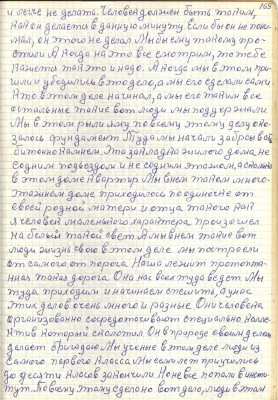 169
и легче не делать. Человек должен быть таким,
как он делается в данную минуту. Если бы он не пони-
мал, он этого не делал. Мы ему такому про-
стили. А когда на это все смотрим, то тебе
кажется так это и надо. А когда мы в этом при-
шли и убедились в это дело, а мы его сделали сами
Кто в этом деле начинал, а мы его такие все
остальные такие вот люди мы поддержали
Мы в этом рыли яму по всему этому делу ока-
залось фундамент. Туда мы начали забрасывать
битонно камнем. Это закладка жилого дома не
с одним подъездом и не с одним этажом, а сколько
в этом доме квартир. Мы в нем таком много-
этажном доме приходилось по одиночке от
своей родной матери и отца такого как
я человек маленького характера произошел
на белый такой свет. А мы в нем такие вот
люди жизнь свою в этом деле мы построили
от самого от порога. Наша лежит протопта-
нная такая дорога. Она нас всех туда ведет. Мы
туда приходим и начинаем спешить, а у нас
этих делов очень много и разные. Они человека
организованно сосредотачивают специально колле-
ктив который сколотил. Он в природе своим делом
делает бригадою. Мы ученые в этом деле люди из
самого первого класса. Мы все млет приучились
до десяти классов закончили. Но не все попали в инсти-
тут. По всему этому сделано вот дело, люди в этом